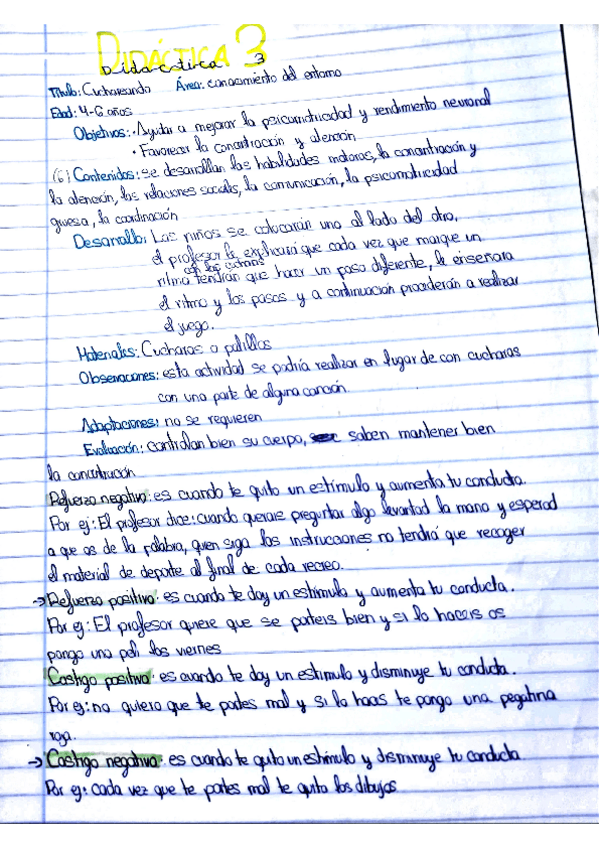 DIDÁCTICA 3
Didactica 3
Título: Cuchareando Área: conocimiento del entorno
Edad: 4-6 años
Objetivos: · Ayudar a mejorar la psicomotricidad y rendimiento neuronal
· Favorecer la concentración y atención
(6) Contenidos: se desarrollan las habilidades motoras, la concentración y
la atención, las relaciones sociales, la comunicación, la psicomotricidad
gruesa, la coordinación
Desarrollo: Los niños se colocarán uno al lado del otro,
el profesor le explicará que cada vez que marque un
ritmo tendrán que hacer un paso diferente, le enseñara
el ritmo y los pasos y a continuación procederán a realizar
el juego.
Materiales: Cucharas o palillos
Observaciones: esta actividad se podría realizar en lugar de con cucharas
con una parte de alguna canción.
Adaptaciones: no se requieren
Evaluación: controlan bien su cuerpo, saben mantener bien
la concentración
Refuerzo negativo: es cuando te quito un estímulo y aumenta tu conducta.
Por ej: El profesor dice: cuando querais preguntar algo levantad la mano y esperad
a que os de la palabra, quien siga las instrucciones no tendrá que recoger
el material de deporte al final de cada recreo.
→ Refuerzo positivo: es cuando te doy un estimulo y aumenta tu conducta.
Por ej: El profesor quiere que se porteis bien y si lo haceis os
pongo una peli los viernes
Castigo positivo: es cuando te doy un estimulo y disminuye tu conducta.
Por ej: no quiero que te portes mal y si lo haces te pongo una pegatina
roja.
→ Castigo negativo: es cuando te quito un estímulo y disminuye tu conducta
Por ej: cada vez que te portes mal te quito los dibujos